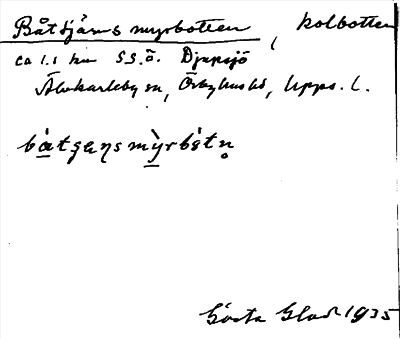 Båtstjärns myrbotten, kolbotten
ca 1.1 km S.S.Ö. Djupsjö
Älvkarleby sn, Örbyhus hd, Upps. l.
Gösta Glad 1935